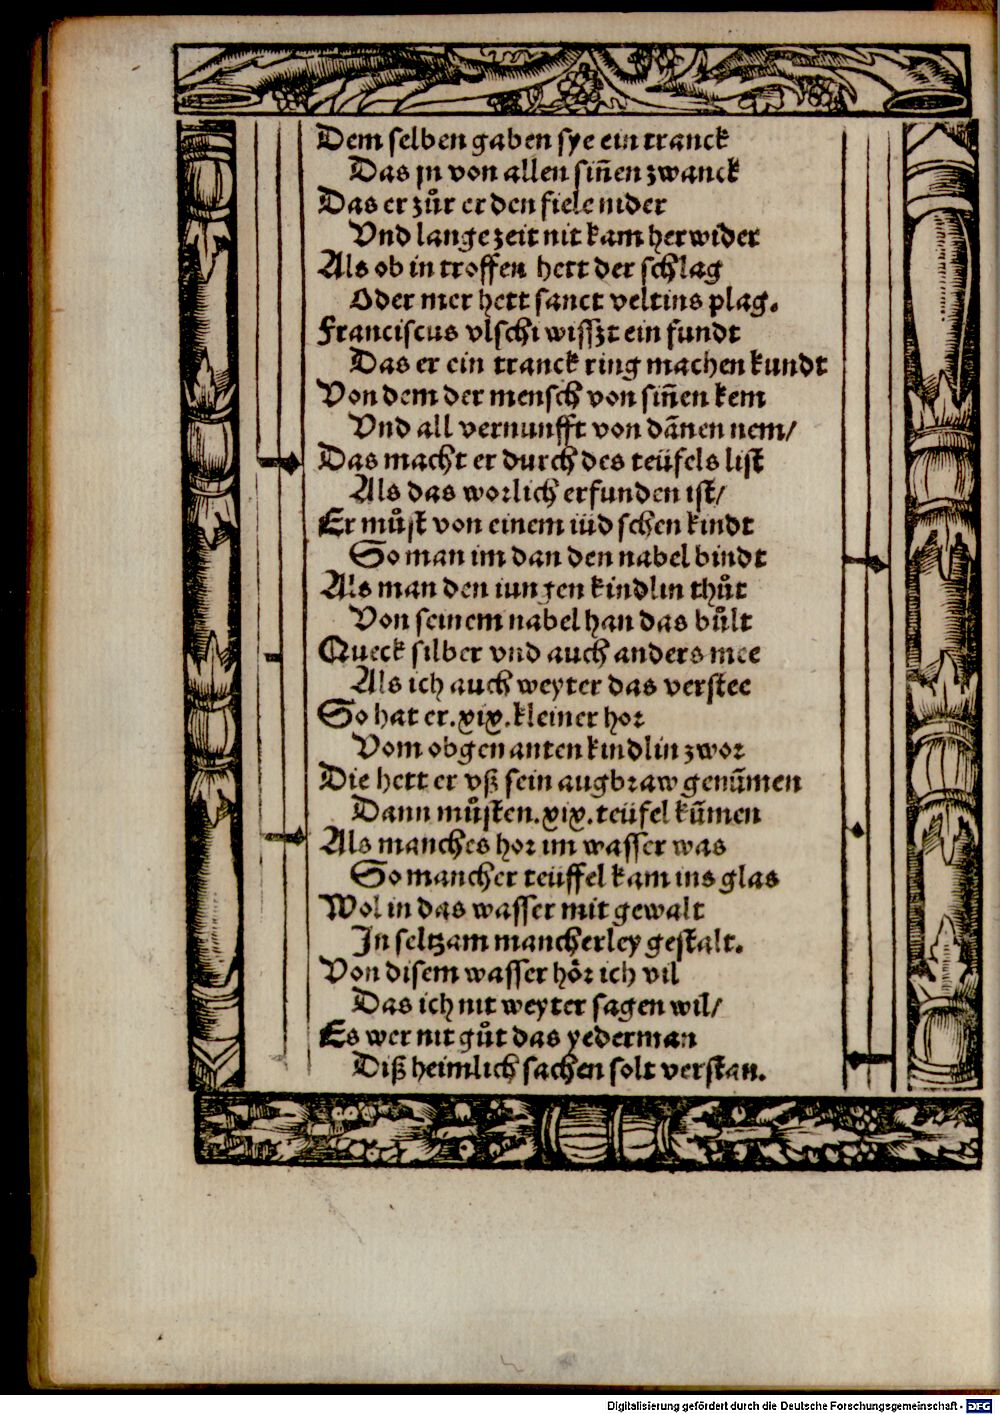 Dem selben gaben sye ein tranck
Das jn von allen siñen zwanck
Das er zůr erden fiele nider
Vnd lange zeit nit kam herwider
Als ob in troffen hett der schlag
Oder mer hett sanct veltins plag.
Franciscus vlschi wisszt ein fundt
Das er ein tranck ring machen kundt
Von dem der mensch von siñen kem
Vnd all vernunfft von dãnen nem/
Das macht er durch des teüfels list
Als das worlich erfunden ist/
Er můst von einem iüdschen kindt
So man im dan den nabel bindt
Als man den iungen kindlin thůt
Von seinem nabel han das bůlt
Queck silber vnd auch anders mee
Als ich auch weyter das verstee
So hat er .xix. kleiner hor
Vom obgenanten kindlin zwor
Die hett er vß sein augbraw genũmen
Dann můsten .xix. teüfel kũmen
Als manches hor im wasser was
So mancher teüffel kam ins glas
Wol in das wasser mit gewalt
In seltzam mancherley gestalt.
Von disem wasser hör ich vil
Das ich nit weyter sagen wil/
Es wer nit gůt das yederman
Diß heimlich sachen solt verstan.
Digitalisierung gefördert durch die Deutsche Forschungsgemeinschaft - DFG